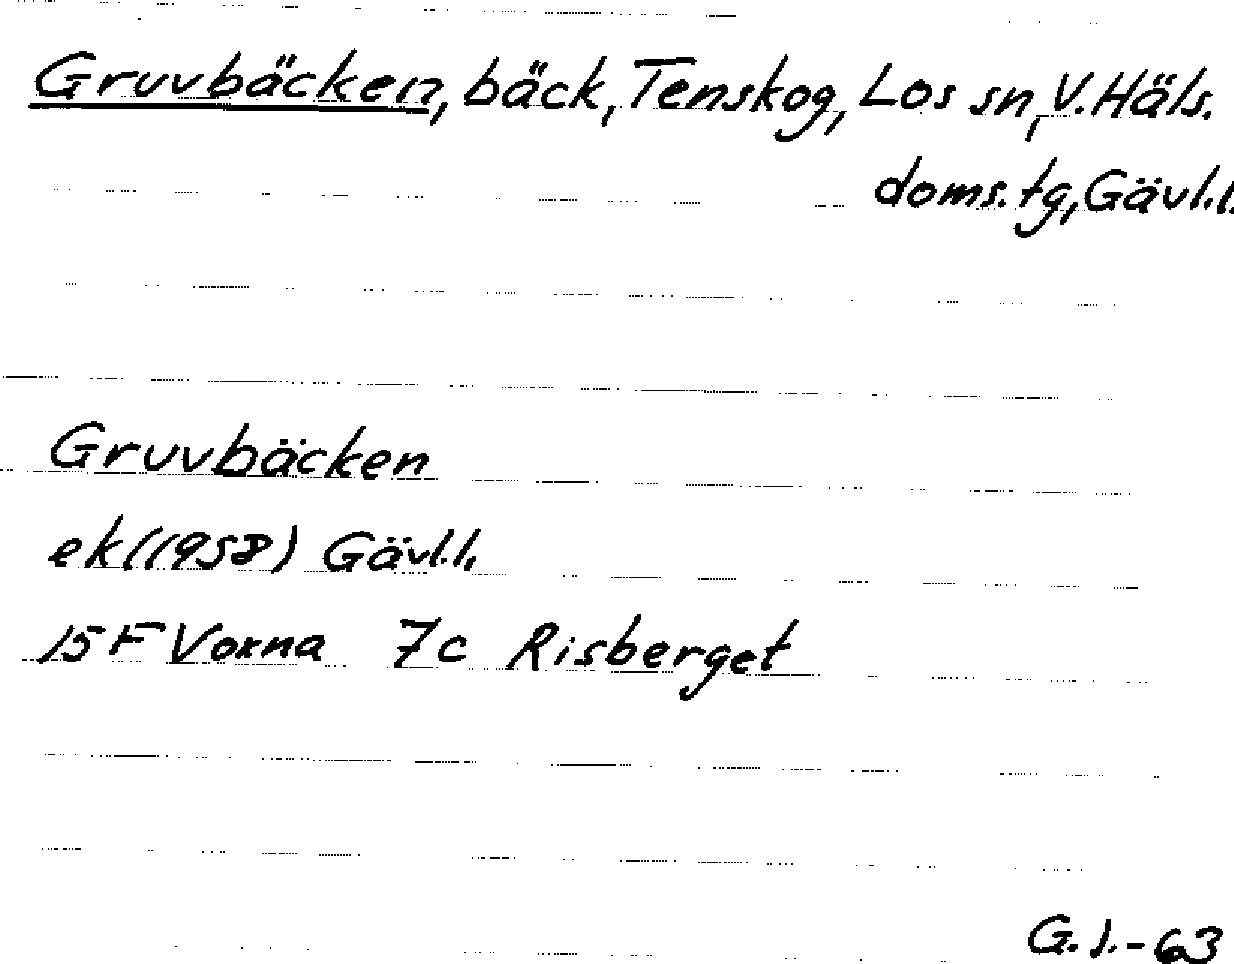 Gruvbäcken, bäck, Tenskog, Los sn, V. Häls.
doms. tg, Gävl.l.
Gruvbäcken
ek (1958) Gävl.l.
15 F Voxna 7c Risberget
G.J.-63